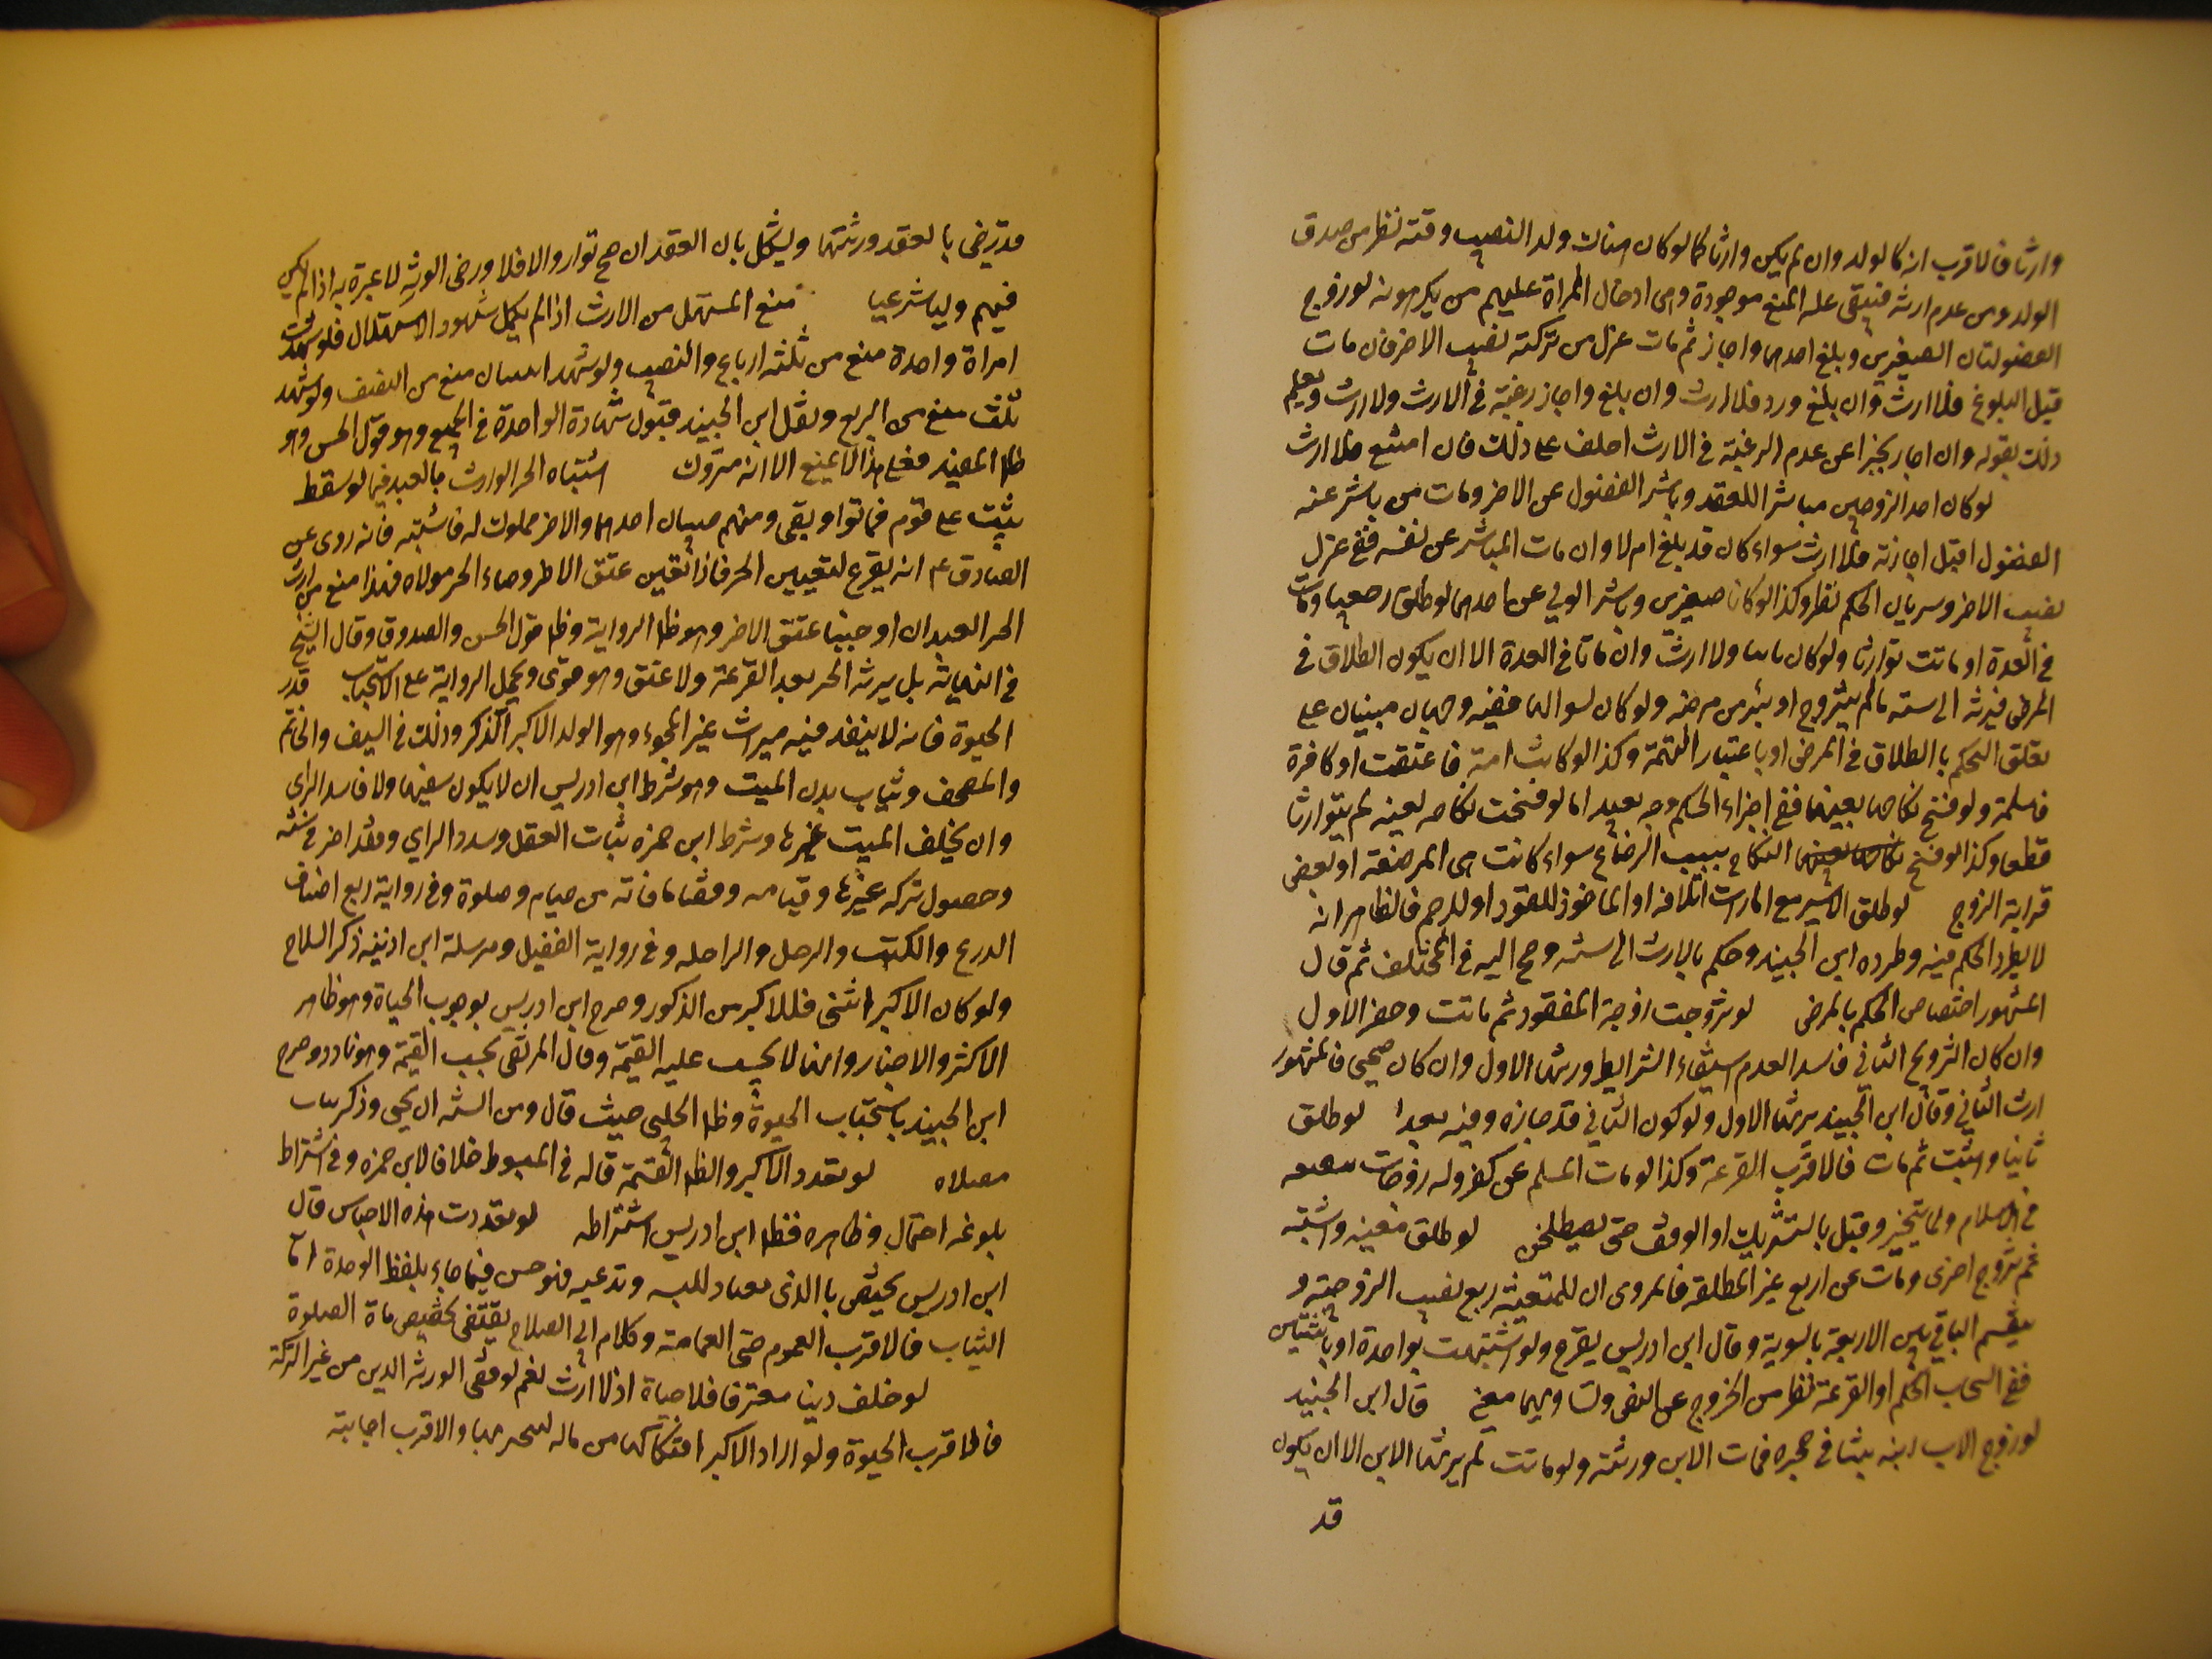 وارثا فالاقرب انه كالولد وان لم يكن وارثا كما لو كان هناك ولد النصيب وقته نظر من صدق
الولد ومن عدم ارثه فتبقى علة المنع موجودة وهى ادخال المراة عليهم من يكرهونه لو زوج
الفضوليان الصغيرين وبلغ احدهما واجاز ثم مات عزل من تركته نصيب الاخر فان مات
قبل البلوغ فلا ارث وان بلغ ورد فلا ارث وان بلغ واجاز رغبة في الارث ولا ارث ويعلم
ذلك بقوله وان اجاز مخبرا عن عدم الرغبة في الارث احلف على ذلك فان امتنع فلا ارث
لو كان احد الزوجين مباشرا للعقد وباشر الفضول عن الاخر ومات من باشر عنه
الفضول قبل اجازته فلا ارث سواء كان قد بلغ ام لا وان مات المباشر عن نفسه ففي عزل
نصيب الاخر وسريان الحكم نظر وكذا لو كانا صغيرين وباشر الولي عن احدهما لو طلق رجعيا ومات
في العدة او ماتت توارثا ولو كان باينا ولا ارث وان ماتا في العدة الا ان يكون الطلاق في
المرض فيرثه الى سنة ما لم يتزوج او يبرء من مرضه ولو كان لسوالها ففيه وجهان مبنيان على
تعلق الحكم بالطلاق في المرض او باعتبار التهمة وكذا لو كانت امة فاعتقت او كافرة
فاسلمت ولو فسخ نكاحها بعيبها ففي اجراء الحكم وجه بعيد اما لو فسخت نكاحه لعيبه لم يتوارثا
قطعا وكذا لو فسخ النكاح بسبب الرضاع سواء كانت هى المرضعة او بعض
قرابة الزوج لو طلق الاسير مع امارات اتلافه او الماخوذ للقود او للرجم فالظاهر انه
لا يطرد الحكم فيه وطرده ابن الجنيد وحكم بالارث الى سنة وجنح اليه في المختلف ثم قال
المشهور اختصاص الحكم بالمرض لو تزوجت زوجة المفقود ثم ماتت وحضر الاول
وان كان التزويج الثاني فاسدا لعدم استيفاء الشرايط ورثها الاول وان كان صحيحا فالمشهور
ارث الثاني وقال ابن الجنيد يرثها الاول ولو كون الثاني قد حازه وفيه بعد لو طلق
ثانيا واشتبه ثم مات فالاقرب القرعة وكذا لو مات المسلم عن كفر وله زوجات
في الاسلام ولما يتخير وقيل بالتشريك او الوقف حتى يصطلحن لو طلق معينة واشتبه
ثم تزوج اخرى ومات عن اربع غير المطلقة فالمروى ان للمتعينة ربع نصيب الزوجية و
يقسم الباقي بين الاربعة بالسوية وقال ابن ادريس يقرع ولو اشتبهت بواحدة او باثنتين
ففي انسحاب الحكم او القرعة نظر من الخروج عن النص وتساويهما معنى قال ابن الجنيد
لو زوج الاب ابنه بنتا في حجره فمات الابن ورثته ولو ماتت لم يرثها الابن الا ان يكون
قد
قد رضى بالعقد ورثتها ويشكل بان العقد ان صح توارثا والا فلا ورضى الورثه لا عبرة به اذا لم يكن
فيهم وليا شرعيا منع المستهل من الارث اذا لم يكمل شهود الاستهلال فلو شهدت
امراة واحدة منع من ثلثة ارباع والنصيب ولو شهد اثنتان منع من النصف ولو شهد
ثلث منع من الربع ونقل ابن الجنيد قبول شهادة الواحدة في الجميع وهو قول الحسن وهو
ظ المفيد فعلى هذا لا يمنع الا انه متروك اشتباه الحر الوارث بالعبد فيما لو سقط
بيت على قوم فماتوا وبقى ومنهم صبيان احدهما والاخر مملوك له فاشتبه فانه روى عن
الصادق ع انه يقرع لتعيين الحر فاذا تعين عتق الاخر وصار الحر مولاه فهذا منع من ارث
الحر العبد ان اوجبنا عتق الاخر وهو ظ الرواية وظ قول الحسن والصدوق وقال الشيخ
في النهاية بل يرثه الحر بعد القرعة ولا عتق وهو قوى ويحمل الرواية على الاستحباب قدر
الحبوة فانه لا ينفذ فيه ميراث غير المحبوء وهو الولد الاكبر الذكر وذلك في السيف والخاتم
والمصحف وثياب بدن الميت وهو شرط ابن ادريس ان لا يكون سفيها ولا فاسد الراى
وان يخلف الميت غيرها وشرط ابن حمزه ثبات العقل وسدد الراي وفقد اخر في سنه
وحصول تركه غيرها وقيامه وقضا ما فاته من صيام وصلوة وفي رواية ربع اضاف
الدرع والكتب والرحل والراحلة وفي رواية الفضيل ومرسلة ابن اذينه ذكر السلاح
ولو كان الاكبر انثى فللاكبر من الذكور وصرح ابن ادريس بوجوب الحباة وهو ظاهر
الاكثر والاخبار وانها لا يحسب عليه القيمة وقال المرتضى تحسب القيمة وهو نادر وصرح
ابن الجنيد باستحباب الحبوة وظ الحلبي حيث قال ومن السنة ان يحبى وذكر ثياب
مصلاه لو تعدد الاكبر والظ القسمة قاله في المبسوط خلافا لابن حمزه وفي اشتراط
بلوغه احتمال وظاهره فظ ابن ادريس اشتراطه لو تعددت هذه الاجناس قال
ابن ادريس يختص بالذي يعتاد لبسه وتدعيه فنوحسن فيما جاء بلفظ الوحدة اما
الثياب فالاقرب العموم حتى العمامة وكلام ابى الصلاح يقتضى تخصيص ماة الصلوة
لو خلف دينا مستغرقا فلا حباة اذ لا ارث نعم لو قضى الورثة الدين من غير التركة
فالاقرب الحبوة ولو اراد الاكبر افتكاكها من ماله والاقرب اجابته